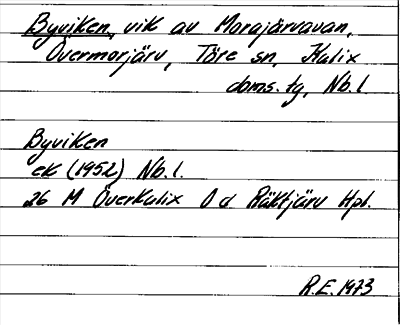 Byviken, vik av Morajärvavan,
Övermorjärv, Töre sn, Kalix
doms. tg, Nb. l.
Byviken
ek (1952) Nb. l.
26 M Överkalix 0 d Räktjärv Hpl.
R.E. 1973